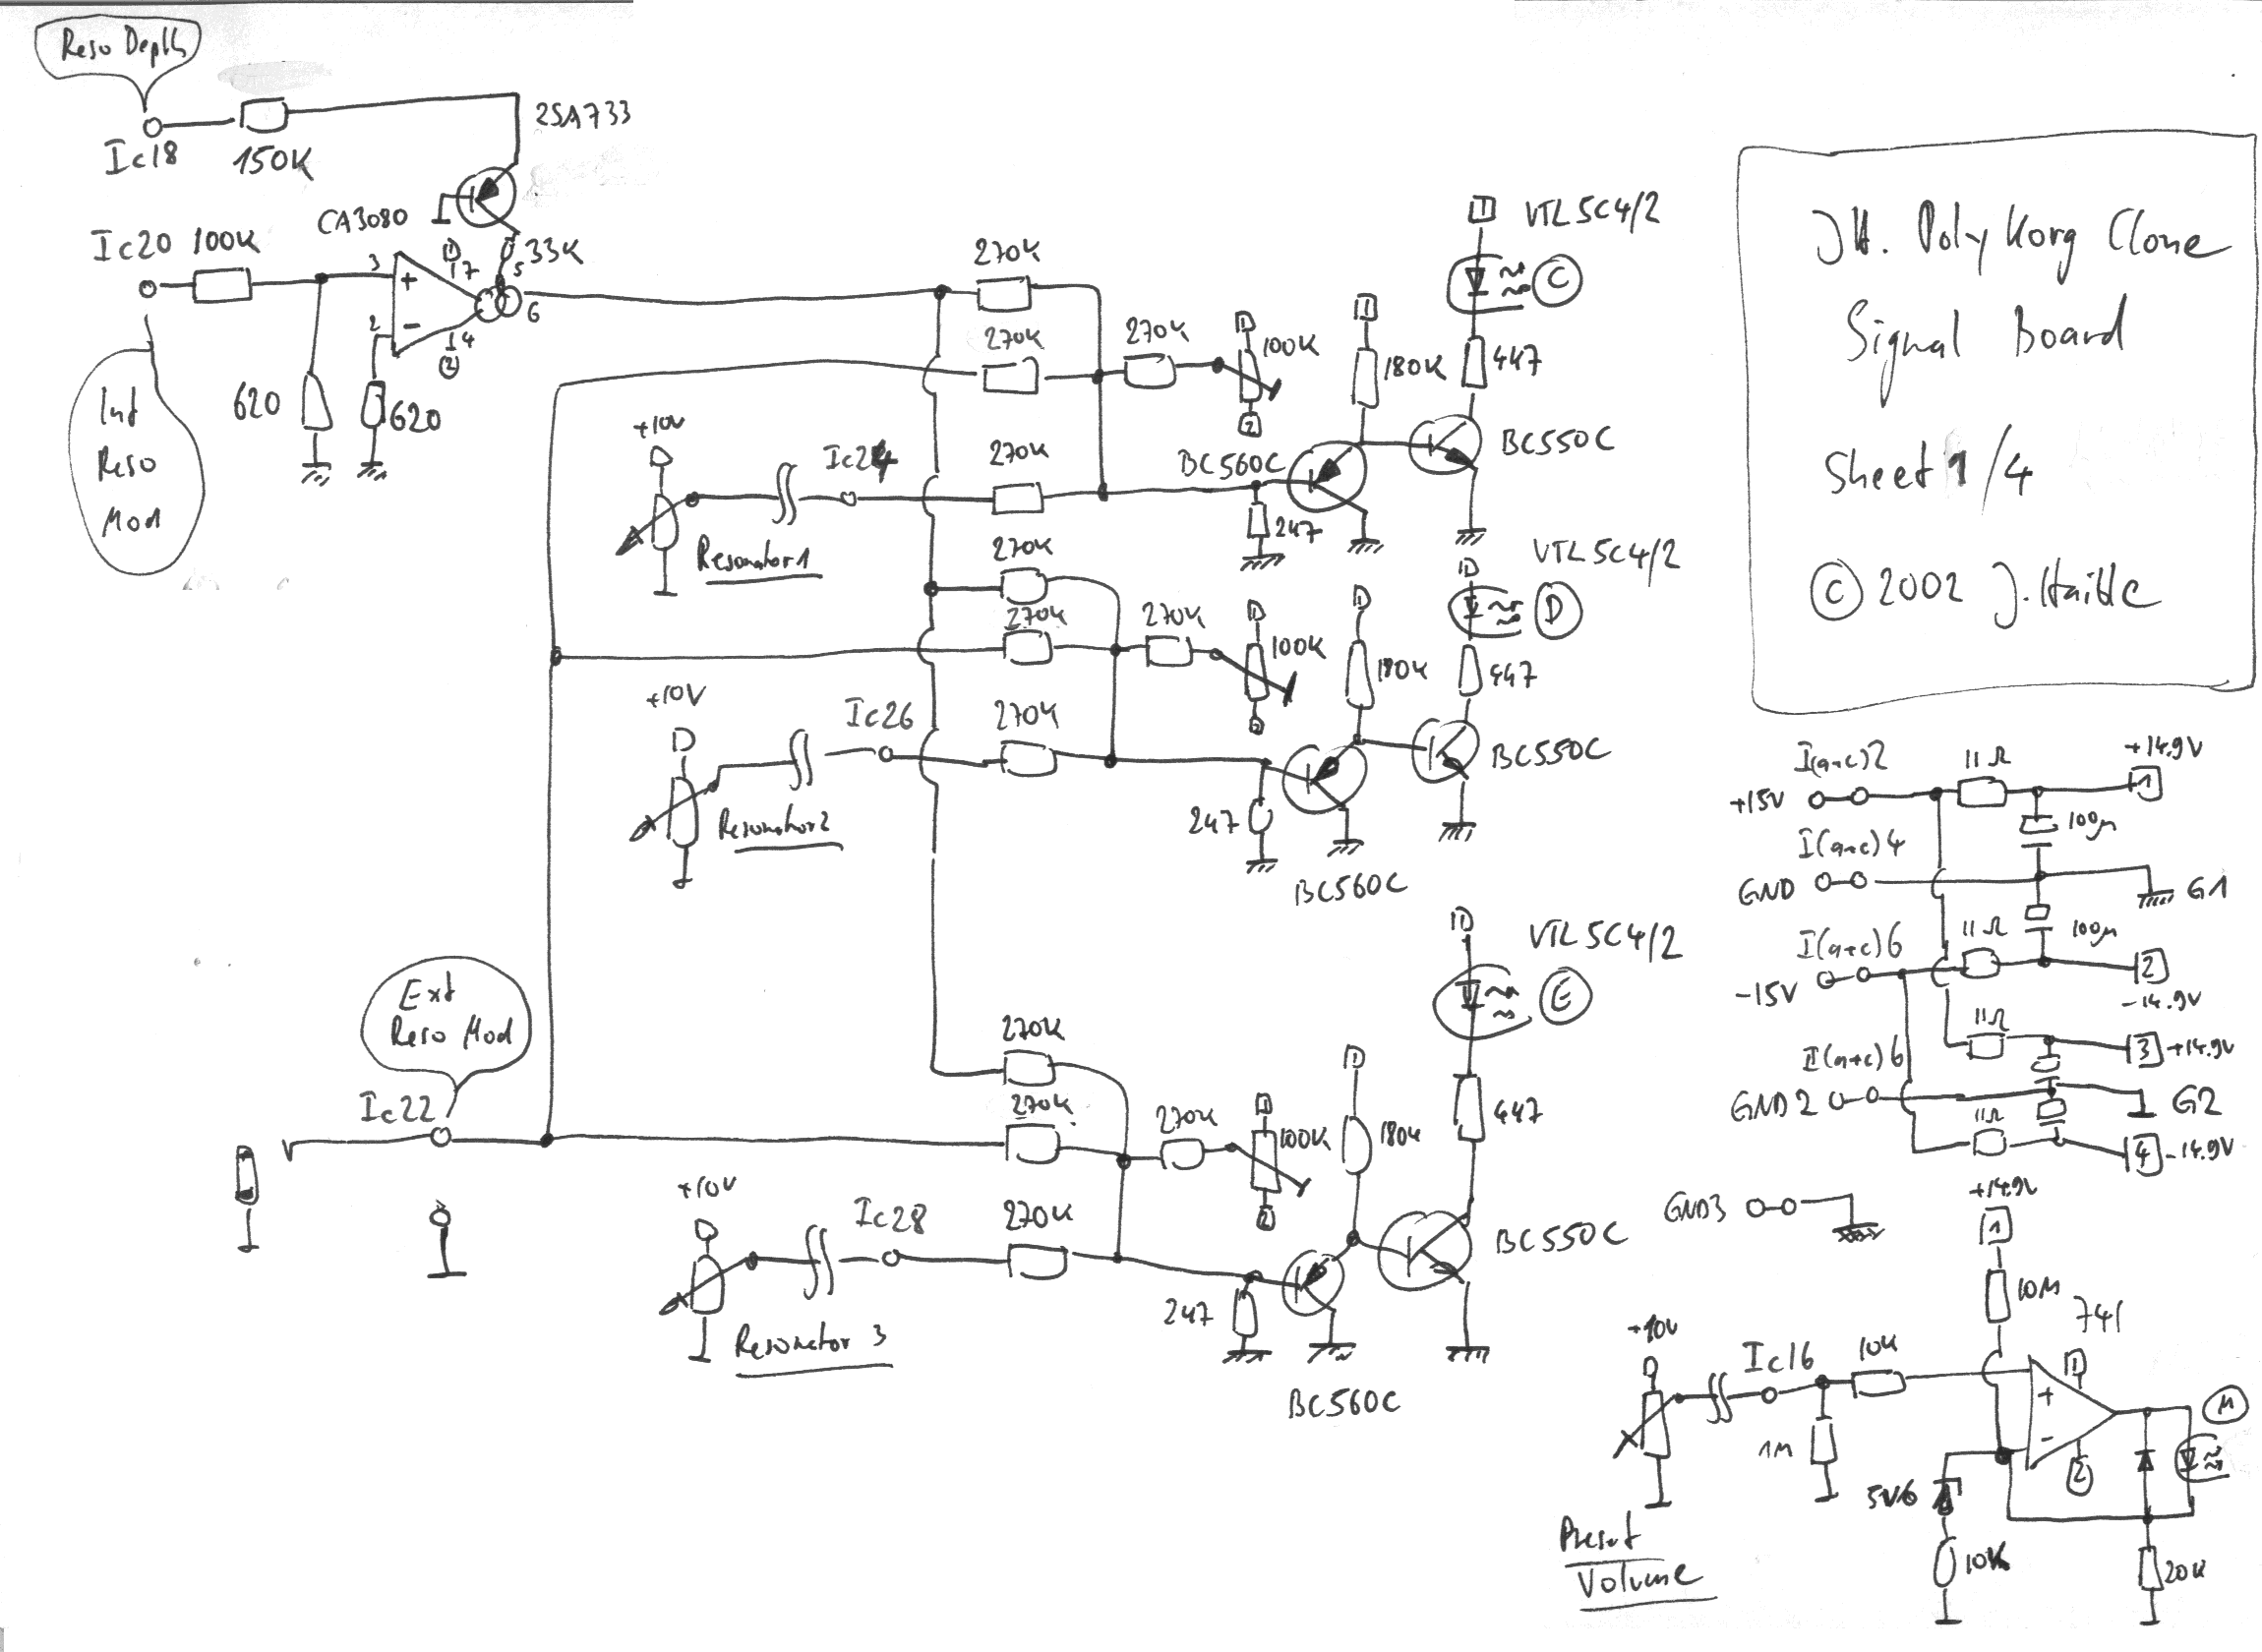 Reso Depth
Ic18
150K
2SA733
Ic20
100K
CA3080
3
2
+
-
1
7
5
33K
6
4
2
620
620
Int
Reso
Mod
270K
270K
270K
1
100K
2
+10V
Ic24
270K
Resonator 1
BC560C
247
1
180K
1
VTL5C4/2
C
447
BC550C
270K
270K
270K
1
100K
2
+10V
Ic26
270K
Resonator 2
247
BC560C
1
180K
VTL5C4/2
1
D
447
BC550C
Ext
Reso Mod
Ic22
270K
270K
270K
1
100K
2
+10V
Ic28
270K
Resonator 3
247
BC560C
1
180K
1
VTL5C4/2
E
447
BC550C
JH. PolyKorg Clone
Signal Board
Sheet 1/4
© 2002 J. Haible
I(a+c)2
11Ω
+14.9V
+15V
1
100µ
I(a+c)4
GND
G1
I(a+c)6
11Ω
100µ
-15V
2
-14.9V
11Ω
3
+14.9V
I(a+c)6
GND2
G2
11Ω
4
-14.9V
GND3
+14.9V
1
10M
741
+10V
Ic16
10K
1M
+
-
1
2
M
5V6
10K
20K
Preset
Volume